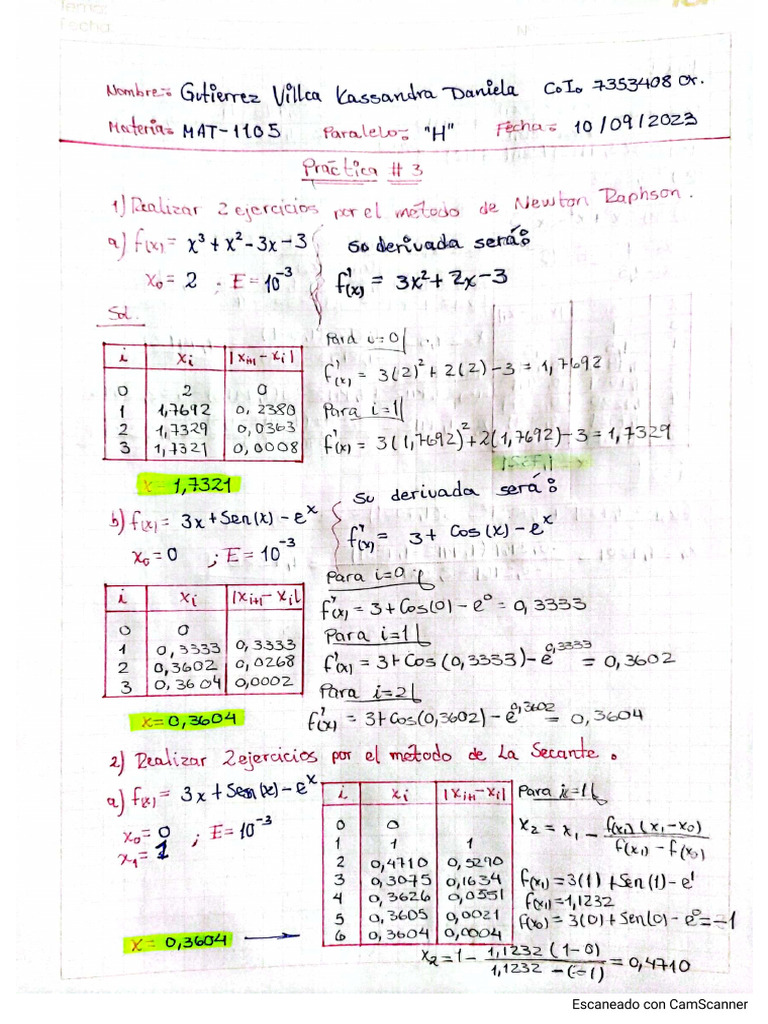 Tema:
Fecha:
Nombre: Gutierrez Villca Kassandra Daniela C.I. 7353408 Or.
Materia: MAT-1105 Paralelo: "H" Fecha: 10/09/2023
Práctica # 3
1) Realizar 2 ejercicios por el método de Newton Raphson.
a) f(x) = x³ + x² - 3x - 3 Su derivada será:
x₀ = 2 ; E = 10⁻³ f'(x) = 3x² + 2x - 3
Sol.
i xi |xi+1 - xi|
0 2 0
1 1,7692 0,2380
2 1,7329 0,0363
3 1,7321 0,0008
Para i=0
f'(x) = 3(2)² + 2(2) - 3 = 1,7692
Para i=1
f'(x) = 3(1,7692)² + 2(1,7692) - 3 = 1,7329
x = 1,7321
b) f(x) = 3x + Sen(x) - eˣ Su derivada será:
x₀ = 0 ; E = 10⁻³ f'(x) = 3 + Cos(x) - eˣ
i xi |xi+1 - xi|
0 0
1 0,3333 0,3333
2 0,3602 0,0268
3 0,3604 0,0002
Para i=0
f'(x) = 3 + Cos(0) - e⁰ = 0,3333
Para i=1
f'(x) = 3 + Cos(0,3333) - e^0,3333 = 0,3602
Para i=2
f'(x) = 3 + Cos(0,3602) - e^0,3602 = 0,3604
x = 0,3604
2) Realizar 2 ejercicios por el método de La Secante.
a) f(x) = 3x + Sen(x) - eˣ
x₀ = 0 ; E = 10⁻³
x₁ = 1
i xi |xi+1 - xi|
0 0
1 1 1
2 0,4710 0,5290
3 0,3075 0,1634
4 0,3626 0,0551
5 0,3605 0,0021
6 0,3604 0,0004
x = 0,3604
Para i=1
x₂ = x₁ - f(x₁)(x₁-x₀) / f(x₁) - f(x₀)
f(x₁) = 3(1) + Sen(1) - e¹
f(x₁) = 1,1232
f(x₀) = 3(0) + Sen(0) - e⁰ = -1
x₂ = 1 - 1,1232(1-0) / 1,1232 - (-1) = 0,4710
Escaneado con CamScanner